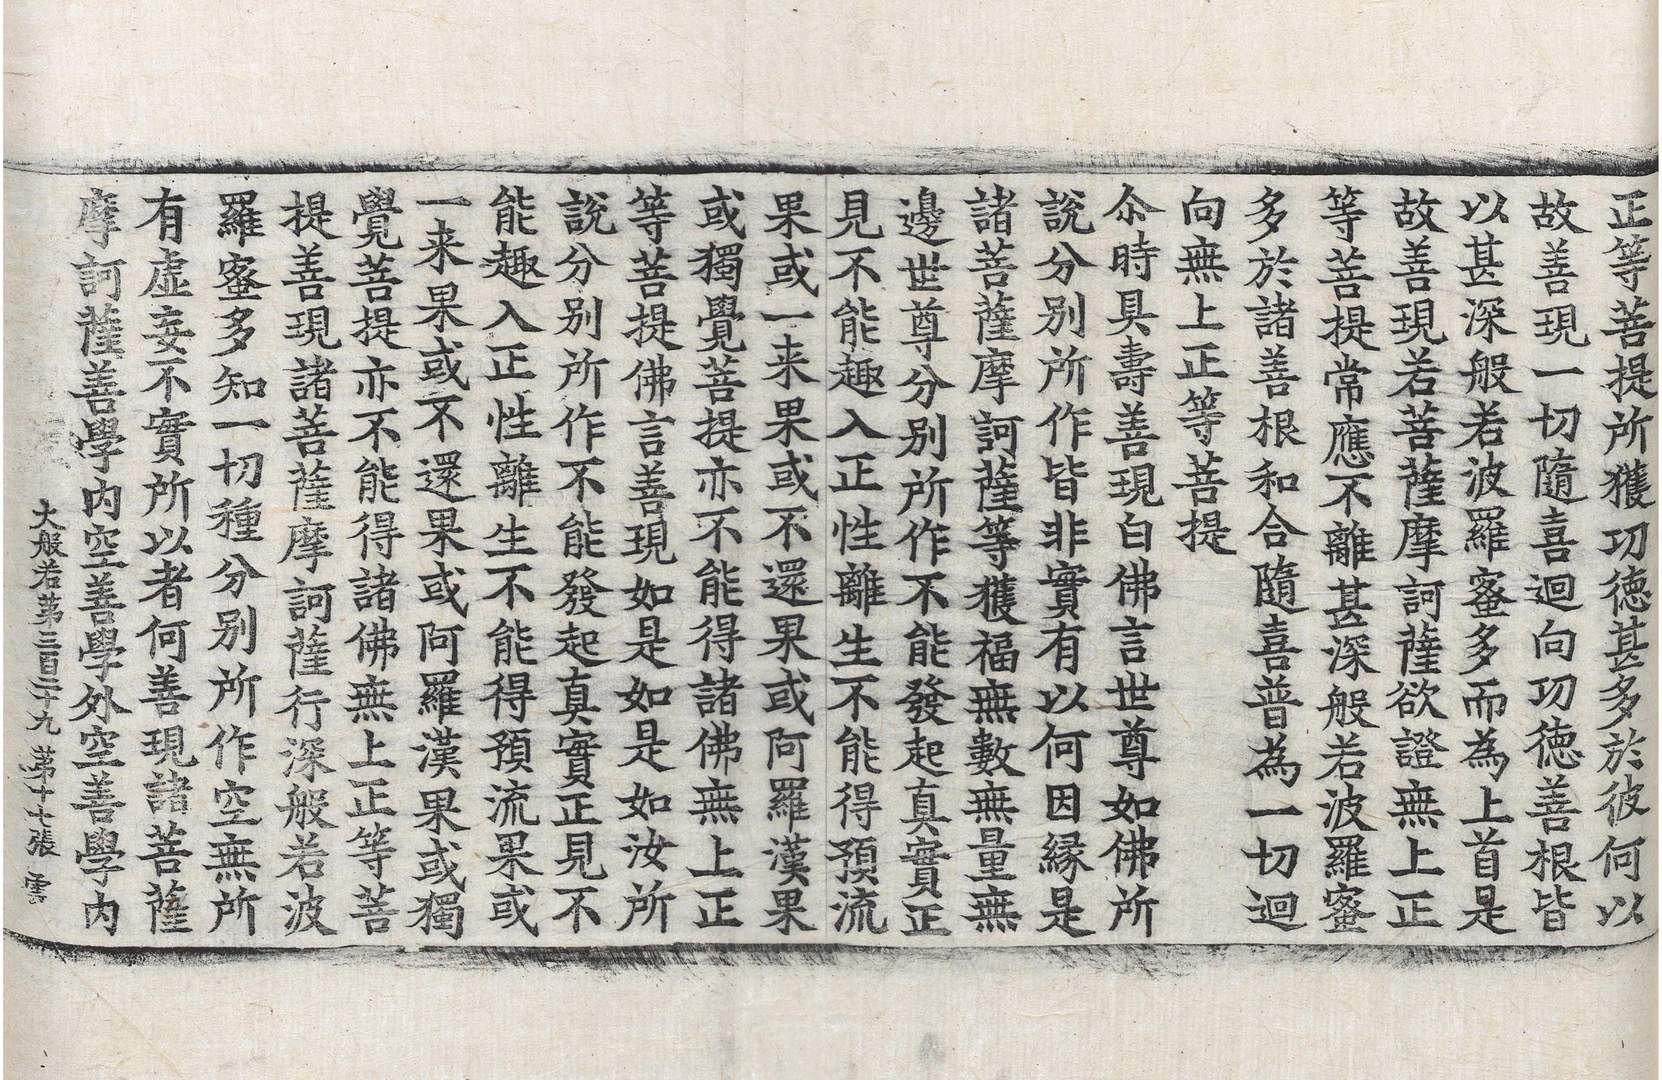 正等菩提所獲功德甚多於彼何以
故善現一切隨喜迴向功德善根皆
以甚深般若波羅蜜多而為上首是
故善現若菩薩摩訶薩欲證無上正
等菩提常應不離甚深般若波羅蜜
多於諸善根和合隨喜普為一切迴
向無上正等菩提
尒時具壽善現白佛言世尊如佛所
說分別所作皆非實有以何因緣是
諸菩薩摩訶薩等獲福無數無量無
邊世尊分別所作不能發起真實正
見不能趣入正性離生不能得預流
果或一来果或不還果或阿羅漢果
或獨覺菩提亦不能得諸佛無上正
等菩提佛言善現如是如是如汝所
說分別所作不能發起真實正見不
能趣入正性離生不能得預流果或
一来果或不還果或阿羅漢果或獨
覺菩提亦不能得諸佛無上正等菩
提善現諸菩薩摩訶薩行深般若波
羅蜜多知一切種分別所作空無所
有虛妄不實所以者何善現諸菩薩
摩訶薩善學內空善學外空善學內
大般若第三百二十九 第十七張 雲